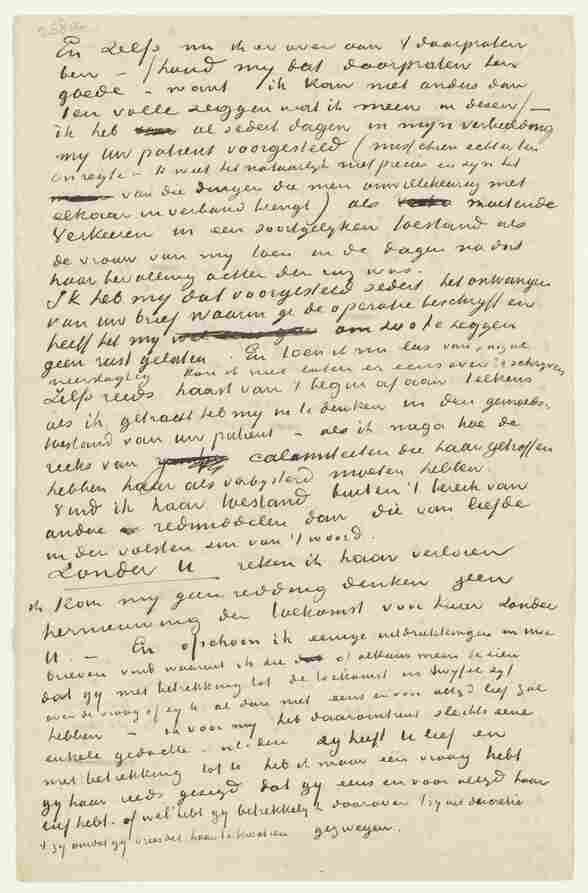 En zelfs nu ik er over aan 't doorpraten
ben – (houd my dat doorpraten ten
goede – want ik kan niet anders dan
ten volle zeggen wat ik meen in dezen) –
ik heb al sedert dagen in myn verbeelding
my uw patient voorgesteld (misschien echter ten
onregte – ik weet het natuurlijk niet precies en zyn het
van die dingen die men onwillekeurig met
elkaar in verband brengt) als moetende
verkeeren in een soortgelyken toestand als
de vrouw van my toen in de dagen nadat
haar bevalling achter den rug was.
Ik heb my dat voorgesteld sedert het ontvangen
van uw brief waarin ge de operatie beschryft en
heeft het my om zoo te zeggen
geen rust gelaten. En toen ik nu las van
kon ik niet laten er eens over te schryven
Zelfs reeds haast van 't begin af aan telkens
als ik getracht heb my in te denken in den gemoeds
toestand van uw patient – als ik naga hoe de
reeks van calamiteiten die haar getroffen
hebben haar als verbysterd moeten hebben.
Vind ik haar toestand buiten 't bereik van
andere redmiddelen dan die van liefde
in den volsten zin van 't woord.
Zonder U reken ik haar verloren
ik kan my geen redding denken geen
hernieuwing der toekomst voor haar zonder
U. – En ofschoon ik eenige uitdrukkingen in uwe
brieven vind waaruit ik zie of althans meen te zien
dat gy met betrekking tot de toekomst in twyfel zyt
over de vraag of zy U al dan niet eens en voor altyd lief zal
hebben – ik voor my heb daaromtrent slechts eene
enkele gedachte – nl. deze zy heeft U lief en
met betrekking tot U heb ik maar een vraag hebt
gy haar reeds gezegd dat gy eens en voor altyd haar
lief hebt. of wel hebt gy betrekkelyk daarover 't zy uit delicatesse
't zy omdat gy vreesdet haar te kwetsen gezwegen.